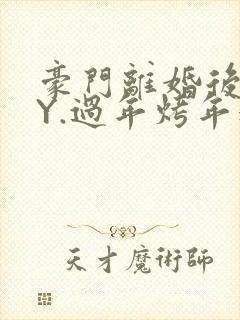 豪門離婚後
Y.過年烤年
天才魔術師